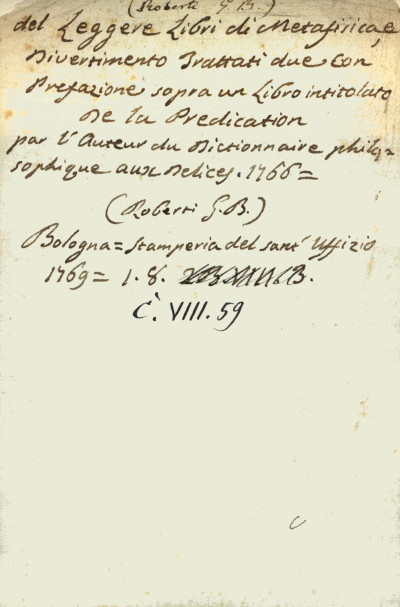 (Roberti G. B.)
del Leggere Libri di Metafisica, e
Divertimento Trattati due Con
Prefazione sopra un Libro intitolato
De la Predication
par l'Auteur du Dictionnaire philo=
sophique aux Delices. 1766=
(Roberti G. B.)
Bologna= Stamperia del sant' Uffizio
1769= 1. 8.
C. VIII. 59